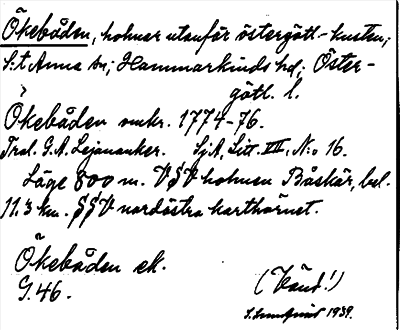 Ökebåden, holmar utanför östergötl-kusten;
S:t Anna sn; Hammarkinds hd; Öster-
götl. l.
Ökebåden omkr. 1774-76.
Trol. G.A. Lejonanker. Sjk, Litt. VII, N:o 16.
Läge 800 m. VSV holmen Båskär, bel.
11.3 km. SSV nordöstra karthörnet.
Ökebåden ek.
G.46.
(Vänd!)
1939.